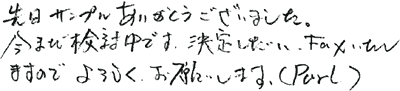 先日サンプルありがとうございました。
今まだ検討中です、決定しだい、Faxいたし
ますので よろしく、お願いします、(Purl)